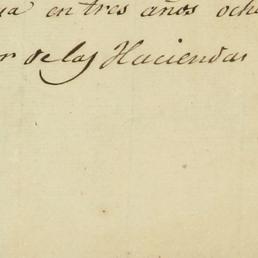 en tres años och
de las Haciendas